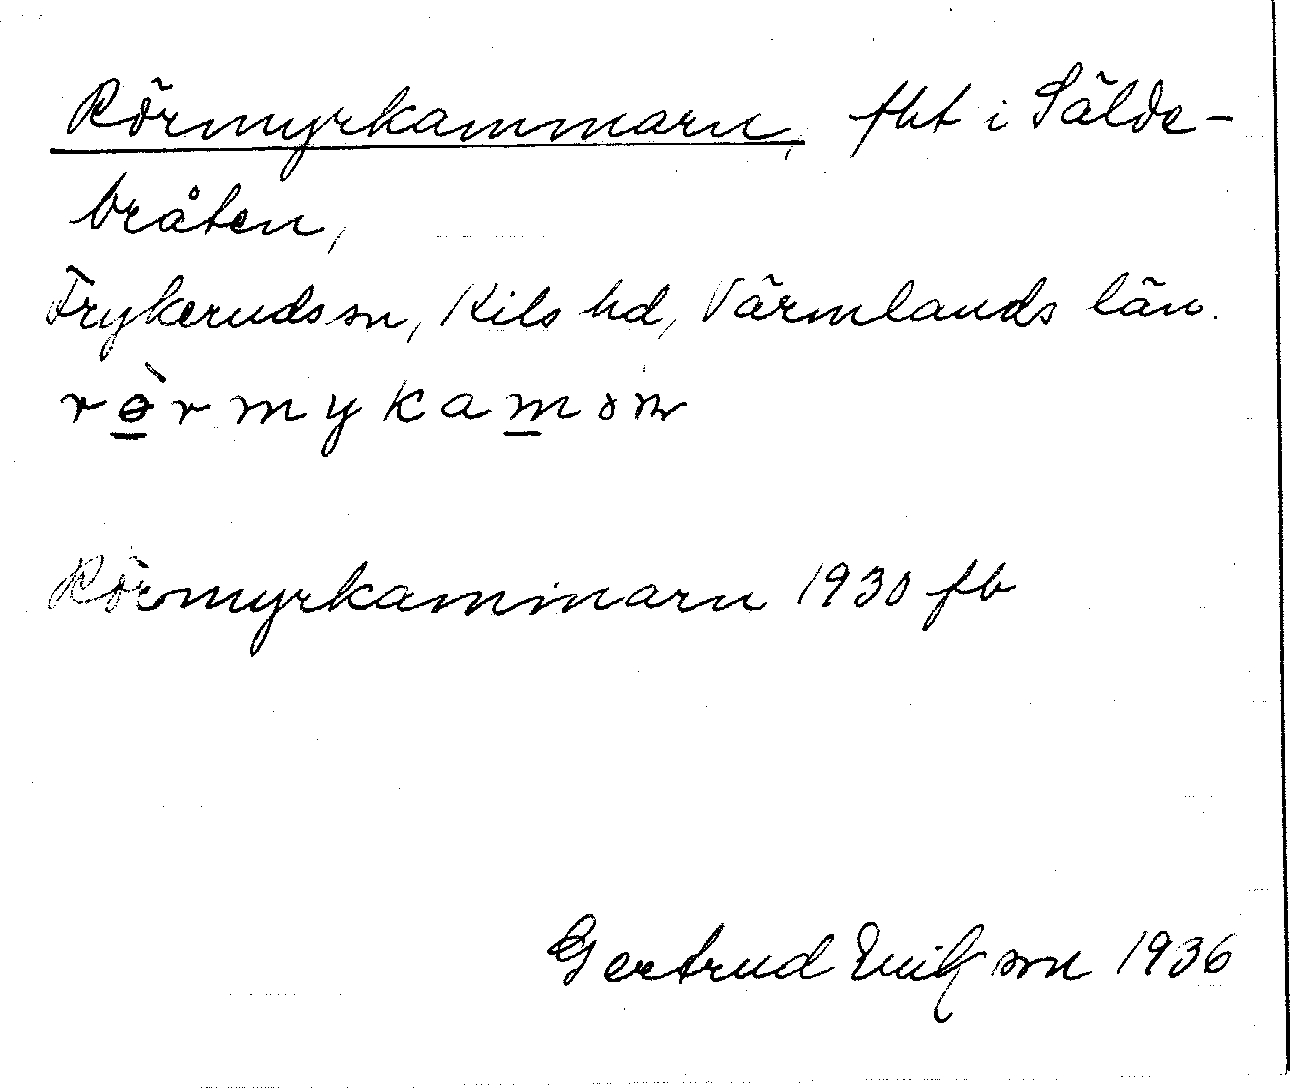 Rörmyrkammarn, fbt i Sälde-
bråten,
Frykeruds sn, Kils hd, Värmlands län.
rə̀rmykamon
Rörmyrkammarn 1930 fb
Gertrud 1936